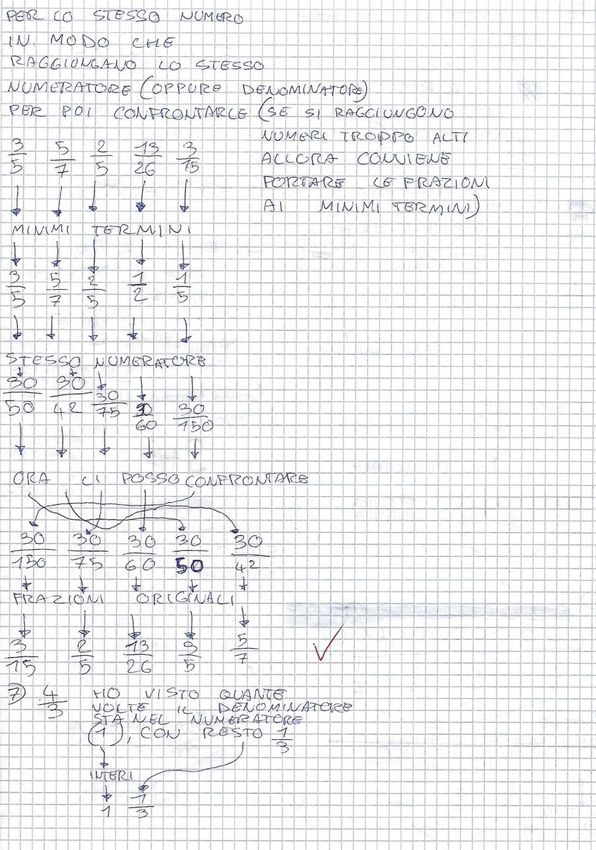 PER LO STESSO NUMERO
IN MODO CHE
RAGGIUNGANO LO STESSO
NUMERATORE (OPPURE DENOMINATORE)
PER POI CONFRONTARLE (SE SI RAGGIUNGONO
NUMERI TROPPO ALTI
ALLORA CONVIENE
PORTARE LE FRAZIONI
AI MINIMI TERMINI)
3/5 5/7 2/5 13/26 3/15
MINIMI TERMINI
3/5 5/7 2/5 1/2 1/5
STESSO NUMERATORE
30/50 30/42 30/75 30/60 30/150
ORA LI POSSO CONFRONTARE
30/150 30/75 30/60 30/50 30/42
FRAZIONI ORIGINALI
3/15 2/5 13/26 3/5 5/7
7) 4/3 HO VISTO QUANTE
VOLTE IL DENOMINATORE
STA NEL NUMERATORE
(1), CON RESTO 1/3
INTERI
1 1/3